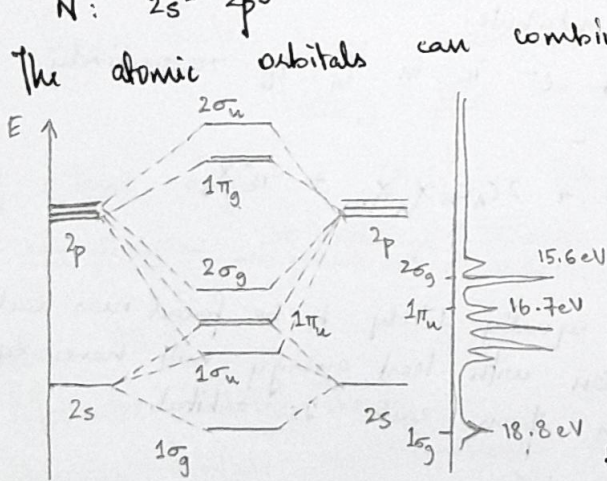 N: 2s 2p
The atomic orbitals can combin
E
2σu
1πg
2p
2p
2σg
1πu
1σu
2s
2s
1σg
15.6eV
2σg
16.7eV
1πu
18.8eV
1σg